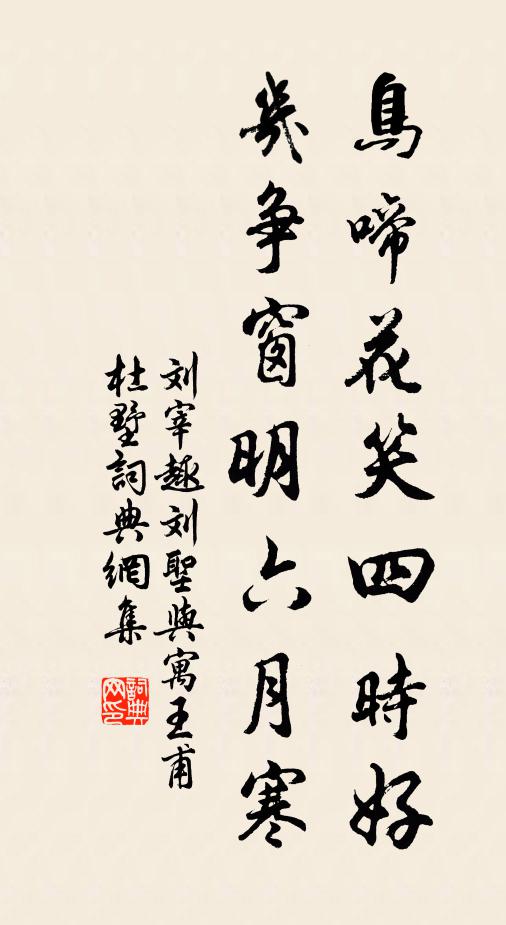 鳥啼花笑四時好
幾爭窗明六月寒
刘宰趣刘聖與寓王甫
杜墅詞典網集
詞典网印